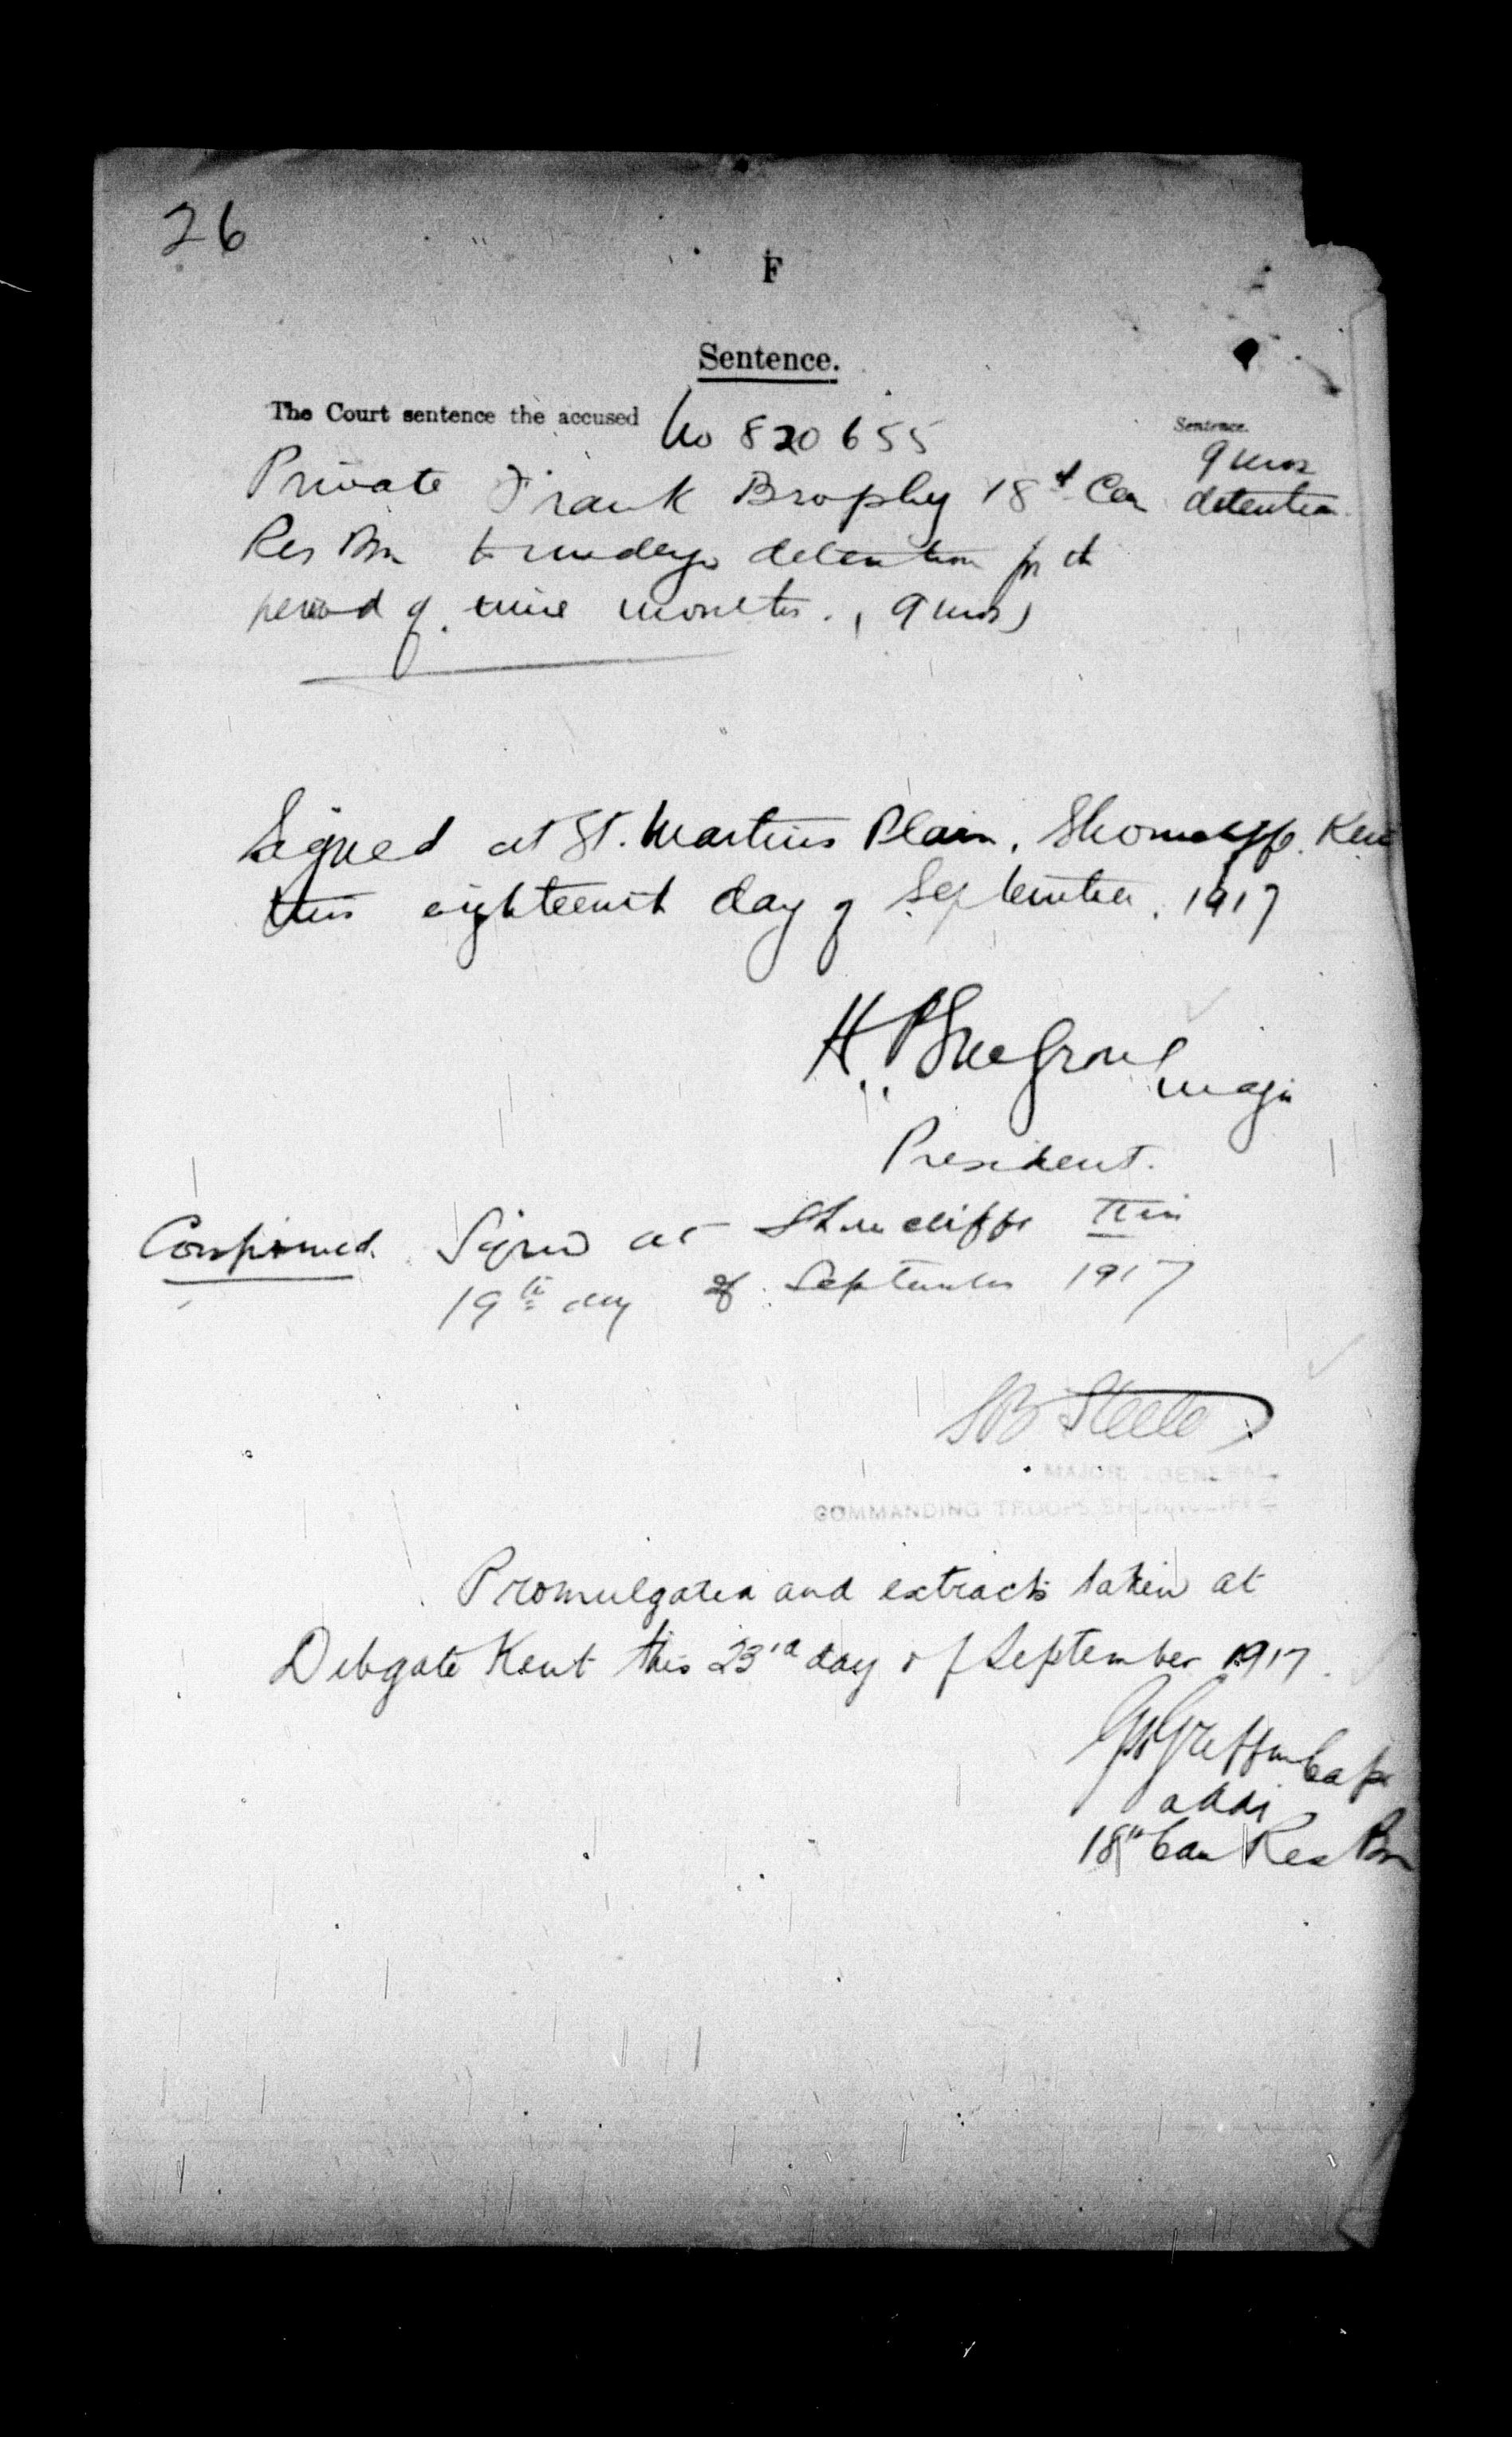 26
F
Sentence.
The Court sentence the accused No 820655
Sentence.
9 mos
detention
Private Frank Brophy 18th Can
Res Bn to undergo detention for the
period of nine months. (9 mos)
Signed at St. Martins Plain, Shorncliffe. Kent
this eighteenth day of September. 1917
H.
Major
President.
Confirmed. Signed at Shorncliffe this
19th day of September 1917
SB Steele
MAJOR GENERAL.
COMMANDING TROOPS SHORNCLIFFE
Promulgated and extracts taken at
Dibgate Kent this 23rd day of September 1917.
Griffin Capt
a/adj
18th Can Res Bn